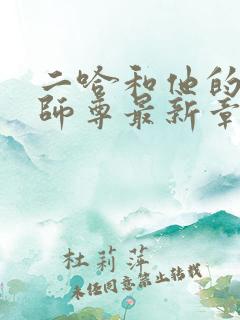 二哈和他的
師尊最新章
杜莉萍
未经同意禁止转载